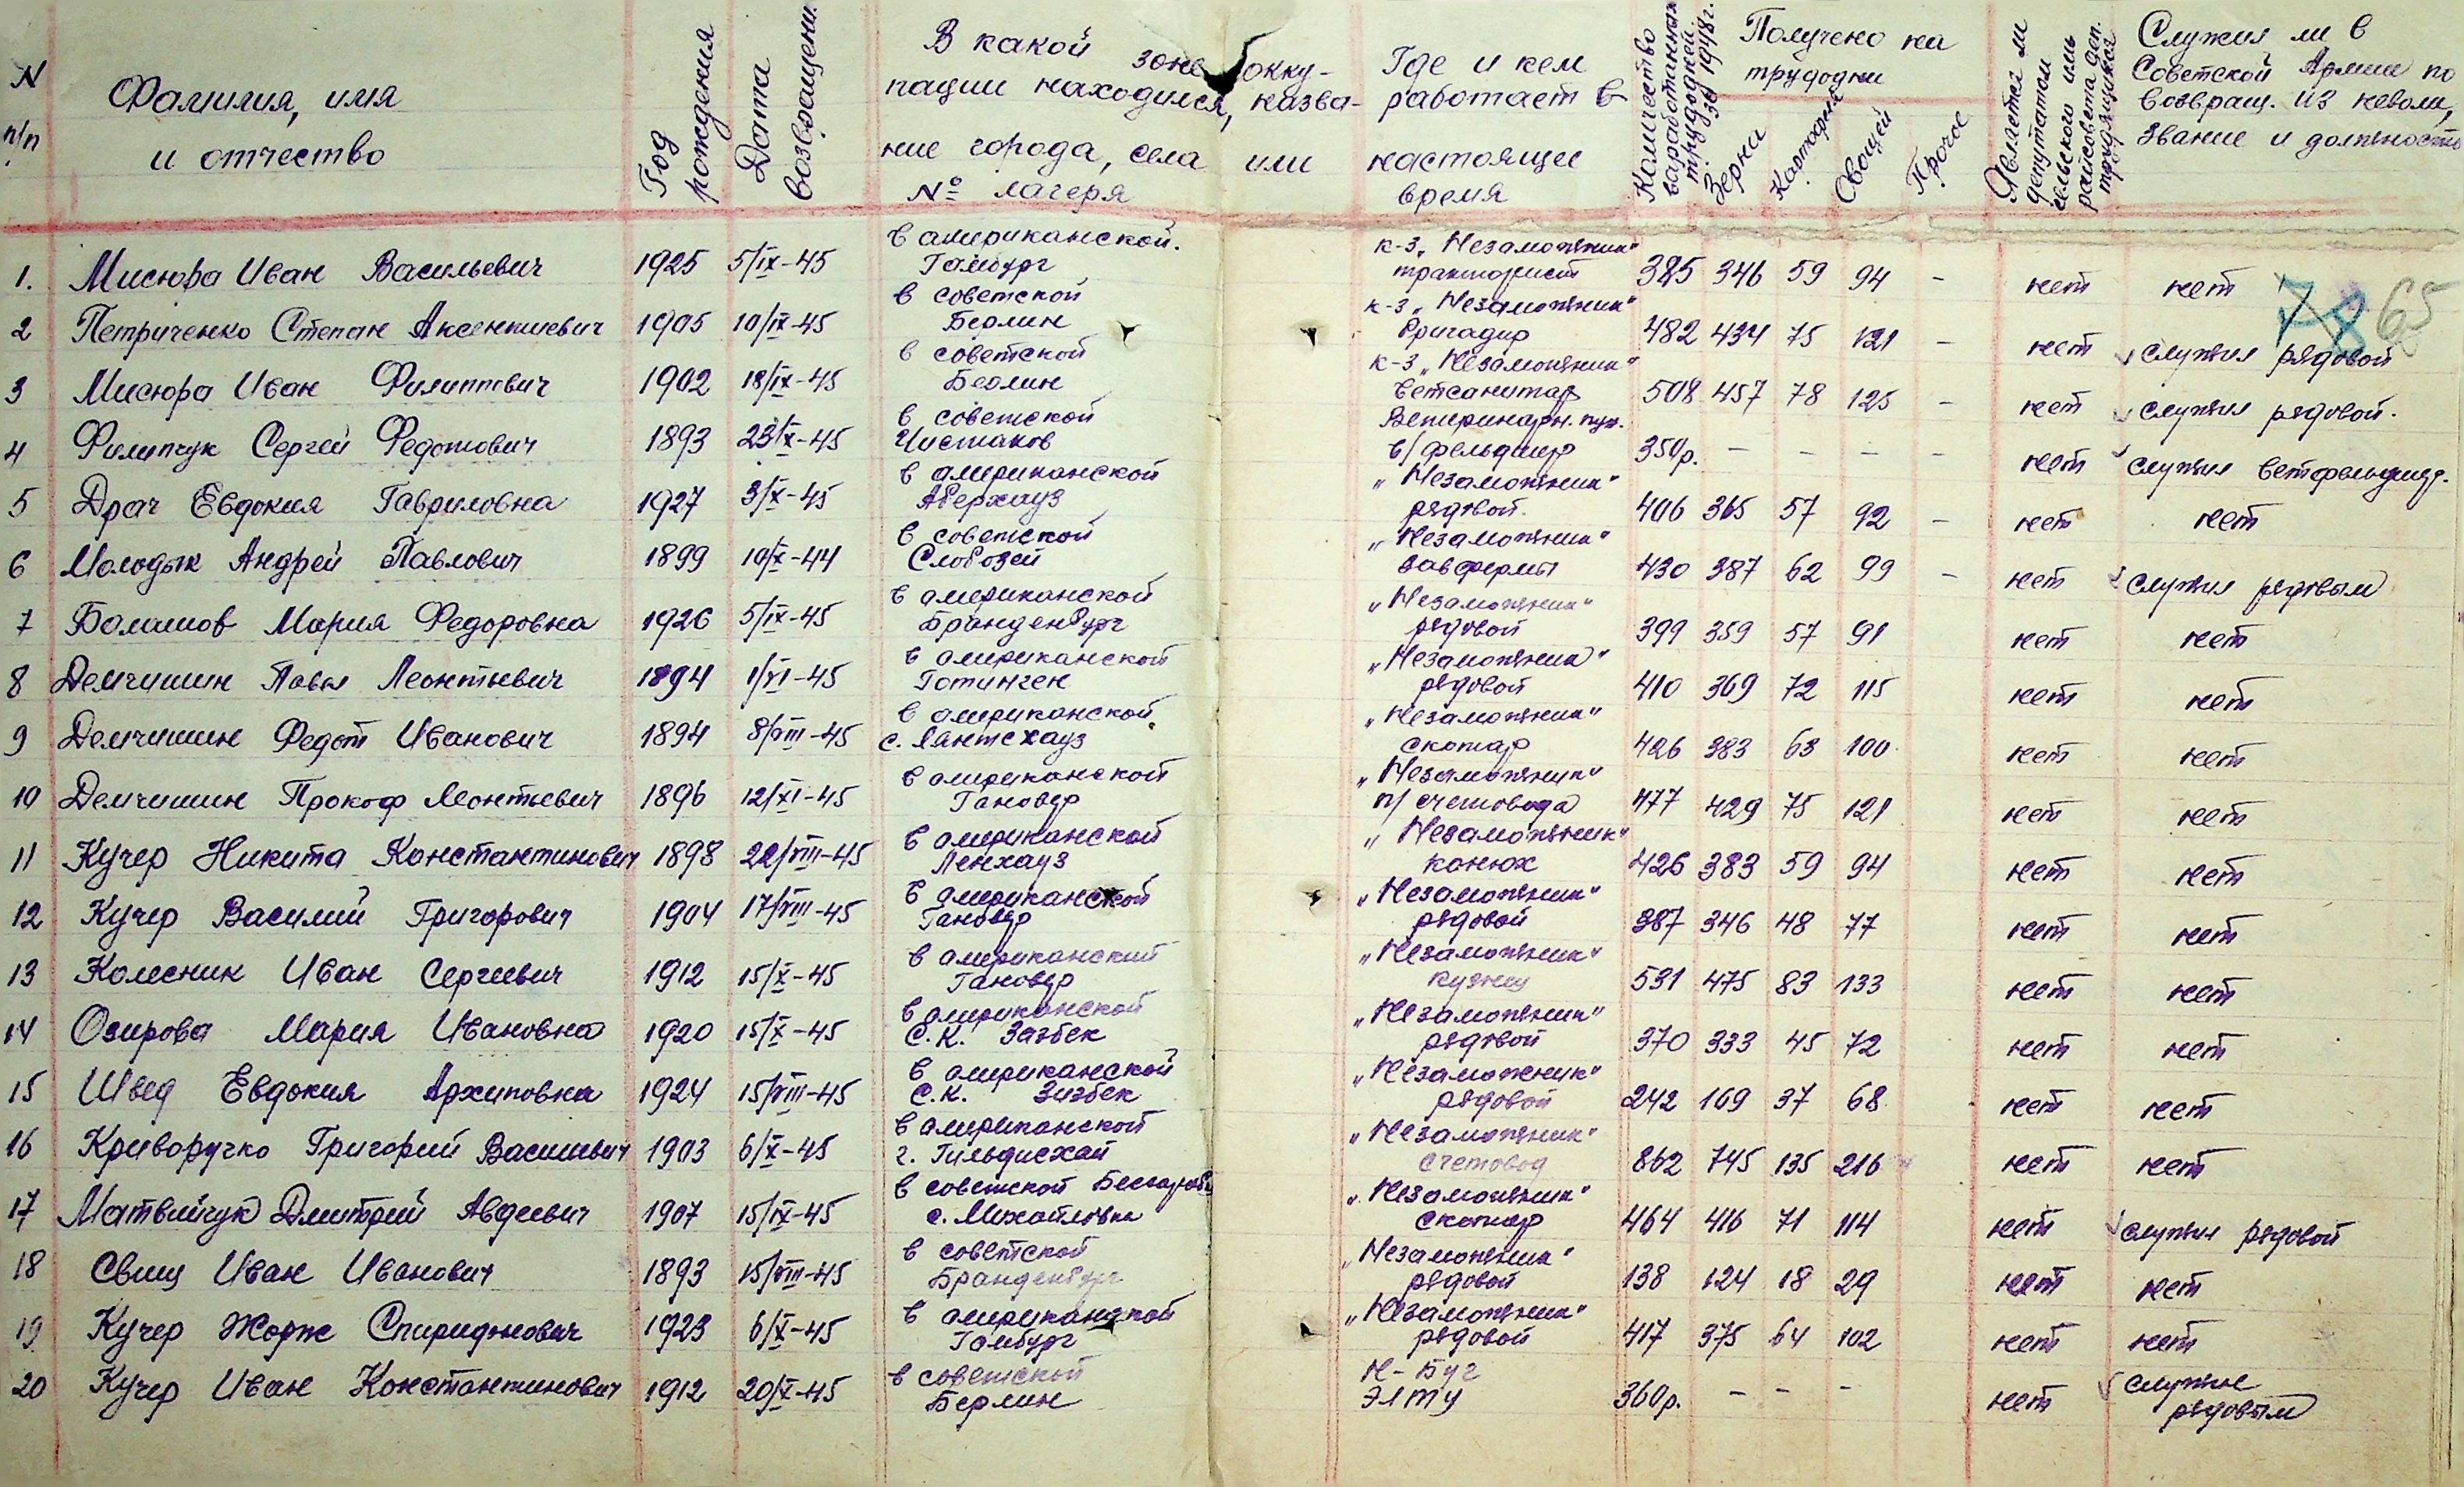 N п/п
Фамилия, имя и отчество
Год рождения
Дата возвращени.
В какой зоне оккупации находился, название города, села или № лагеря
Где и кем работает в настоящее время
Количество выработанных трудодней за 1948 г.
Получено на трудодни
Зерна
Картофеля
Овощей
Прочее
Является ли депутатом сельского иль райсовета деп. трудящихся
Служил ли в Советской Армии по возвращ. из неволи, звание и должность
78 65
1. Мисюра Иван Васильевич 1925 5/IX-45 в американской. Гамбург к-з „Незаможник" тракторист 385 346 59 94 - нет нет
2 Петриченко Степан Аксентиевич 1905 10/IX-45 в советской Берлин к-з „Незаможник" бригадир 482 434 75 121 - нет служил рядовой
3 Мисюра Иван Филиппович 1902 18/IX-45 в советской Берлин к-з „Незаможник" ветсанитар 508 457 78 125 - нет служил рядовой.
4 Филипчук Сергей Федотович 1893 23/X-45 в советской Чистаков Ветеринарн. пун. в/фельдшер 350р. - - - - нет служил ветфельдшер.
5 Драч Евдокия Гавриловна 1927 3/X-45 в американской Аверхауз „Незаможник" рядовой. 406 365 57 92 - нет нет
6 Молодык Андрей Павлович 1899 10/X-44 в советской Слобозей „Незаможник" завфермы 430 387 62 99 - нет служил рядовым
7 Балашов Мария Федоровна 1926 5/IX-45 в американской Бранденбург „Незаможник" рядовой 399 359 57 91 нет нет
8 Демчишин Павел Леонтьевич 1894 1/VI-45 в американской Готинген „Незаможник" рядовой 410 369 72 115 нет нет
9 Демчишин Федот Иванович 1894 8/VIII-45 в американской с. Лянтсхауз „Незаможник" скотар 426 383 63 100 нет нет
10 Демчишин Прокоф Леонтьевич 1896 12/XI-45 в американской Гановер „Незаможник" п/счетовода 477 429 75 121 нет нет
11 Кучер Никита Константинович 1898 22/VIII-45 в американской Ленхауз „Незаможник" конюх 426 383 59 94 нет нет
12 Кучер Василий Григорович 1904 17/VIII-45 в американской Гановер „Незаможник" рядовой 387 346 48 77 нет нет
13 Колесник Иван Сергеевич 1912 15/X-45 в американский Гановер „Незаможник" кузнец 531 475 83 133 нет нет
14 Озирова Мария Ивановна 1920 15/X-45 в американской С.К. Зазбек „Незаможник" рядовой 370 333 45 72 нет нет
15 Швед Евдокия Архиповна 1924 15/VIII-45 в американской С.К. Зизбек „Незаможник" рядовой 242 169 37 68 нет нет
16 Криворучко Григорий Васильевич 1903 6/X-45 в американской г. Гильдисхай „Незаможник" счетовод 862 745 135 216 нет нет
17 Матвийчук Дмитрий Авдеевич 1907 15/IX-45 в советской с. Михайловка „Незаможник" скотар 464 416 71 114 нет служил рядовой
18 Свищ Иван Иванович 1893 15/VIII-45 в советской Бранденбург „Незаможник" рядовой 138 124 18 29 нет нет
19 Кучер Жорж Спиридонович 1923 6/X-45 в американской Гамбург „Незаможник" рядовой 417 375 64 102 нет нет
20 Кучер Иван Константинович 1912 20/X-45 в советской Берлин Н-Буг ЭЛТУ 360р. - - - нет служил рядовым